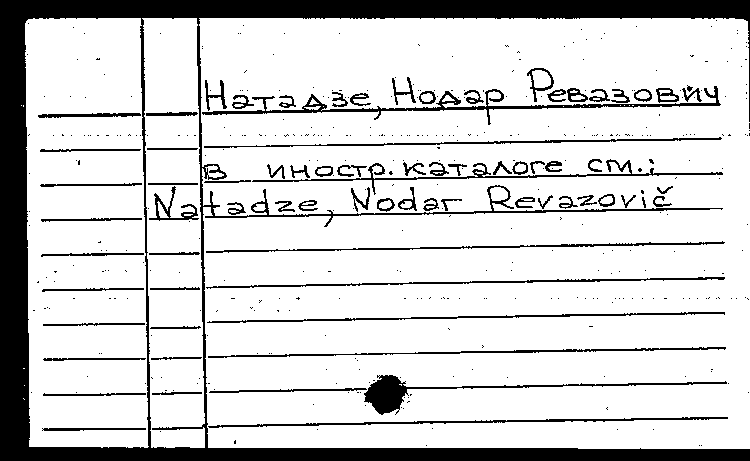 Натадзе, Нодар Ревазович
в иностр. каталоге см.:
Natadze, Nodar Revazovič